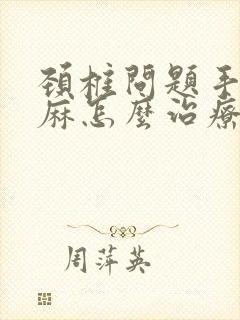 頚柱問題手
麻怎麼治療
周萍英